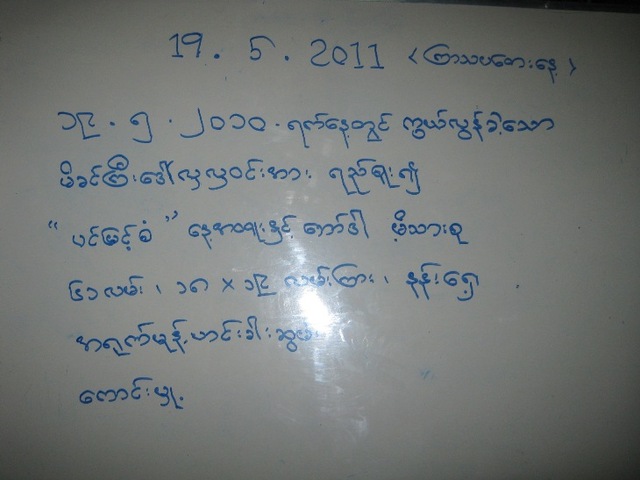 19 . 5 . 2011 (ကြာသပတေးနေ့)
၁၉ . ၅ . ၂၀၁၀ . ရက်နေ့တွင် ကွယ်လွန်ခဲ့သော
မိခင်ကြီးဒေါ်လှလှဝင်းအား ရည်စူး၍
" ပင်မြင့်စံ " နေ့အလှူရှင် ဒေါ်ဒေါ် မိသားစု
၆၁လမ်း ၊ ၁၈ × ၁၉ လမ်းကြား ၊ နန်းရှေ့
အရုက်မုန့်ဟင်းခါးဆွမ်း
ကောင်းမှု.